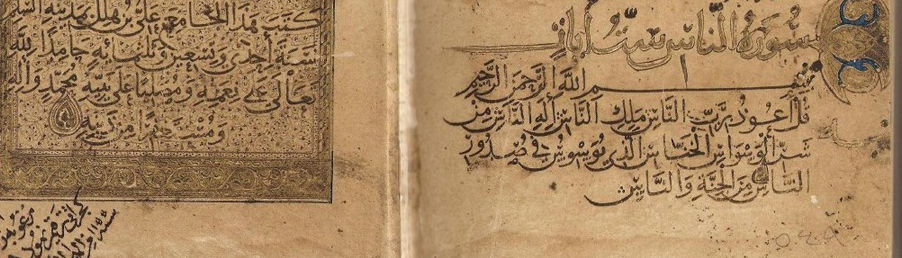 سُورَةُ النَّاسِ سِتُّ آيَاتٍ
بِسْمِ اللَّهِ الرَّحْمَنِ الرَّحِيمِ
قُلْ أَعُوذُ بِرَبِّ النَّاسِ مَلِكِ النَّاسِ إِلَهِ النَّاسِ مِنْ
شَرِّ الْوَسْوَاسِ الْخَنَّاسِ الَّذِي يُوَسْوِسُ فِي صُدُورِ
النَّاسِ مِنَ الْجِنَّةِ وَالنَّاسِ
كَتَبَ هَذَا الجَامِعَ عَلِيُّ بْنُ هِلَلٍ بِمَدِينَةِ السَّلَمِ
سَنَةَ إِحْدَى وَتِسْعِينَ وَثَلَثِمِائَةٍ حَامِدًا لِلَّهِ
تَعَالَى عَلَى نِعَمِهِ وَمُصَلِّيًا عَلَى نَبِيِّهِ مُحَمَّدٍ وَآلِهِ
وَمُسْتَغْفِرًا مِنْ ذَنْبِهِ